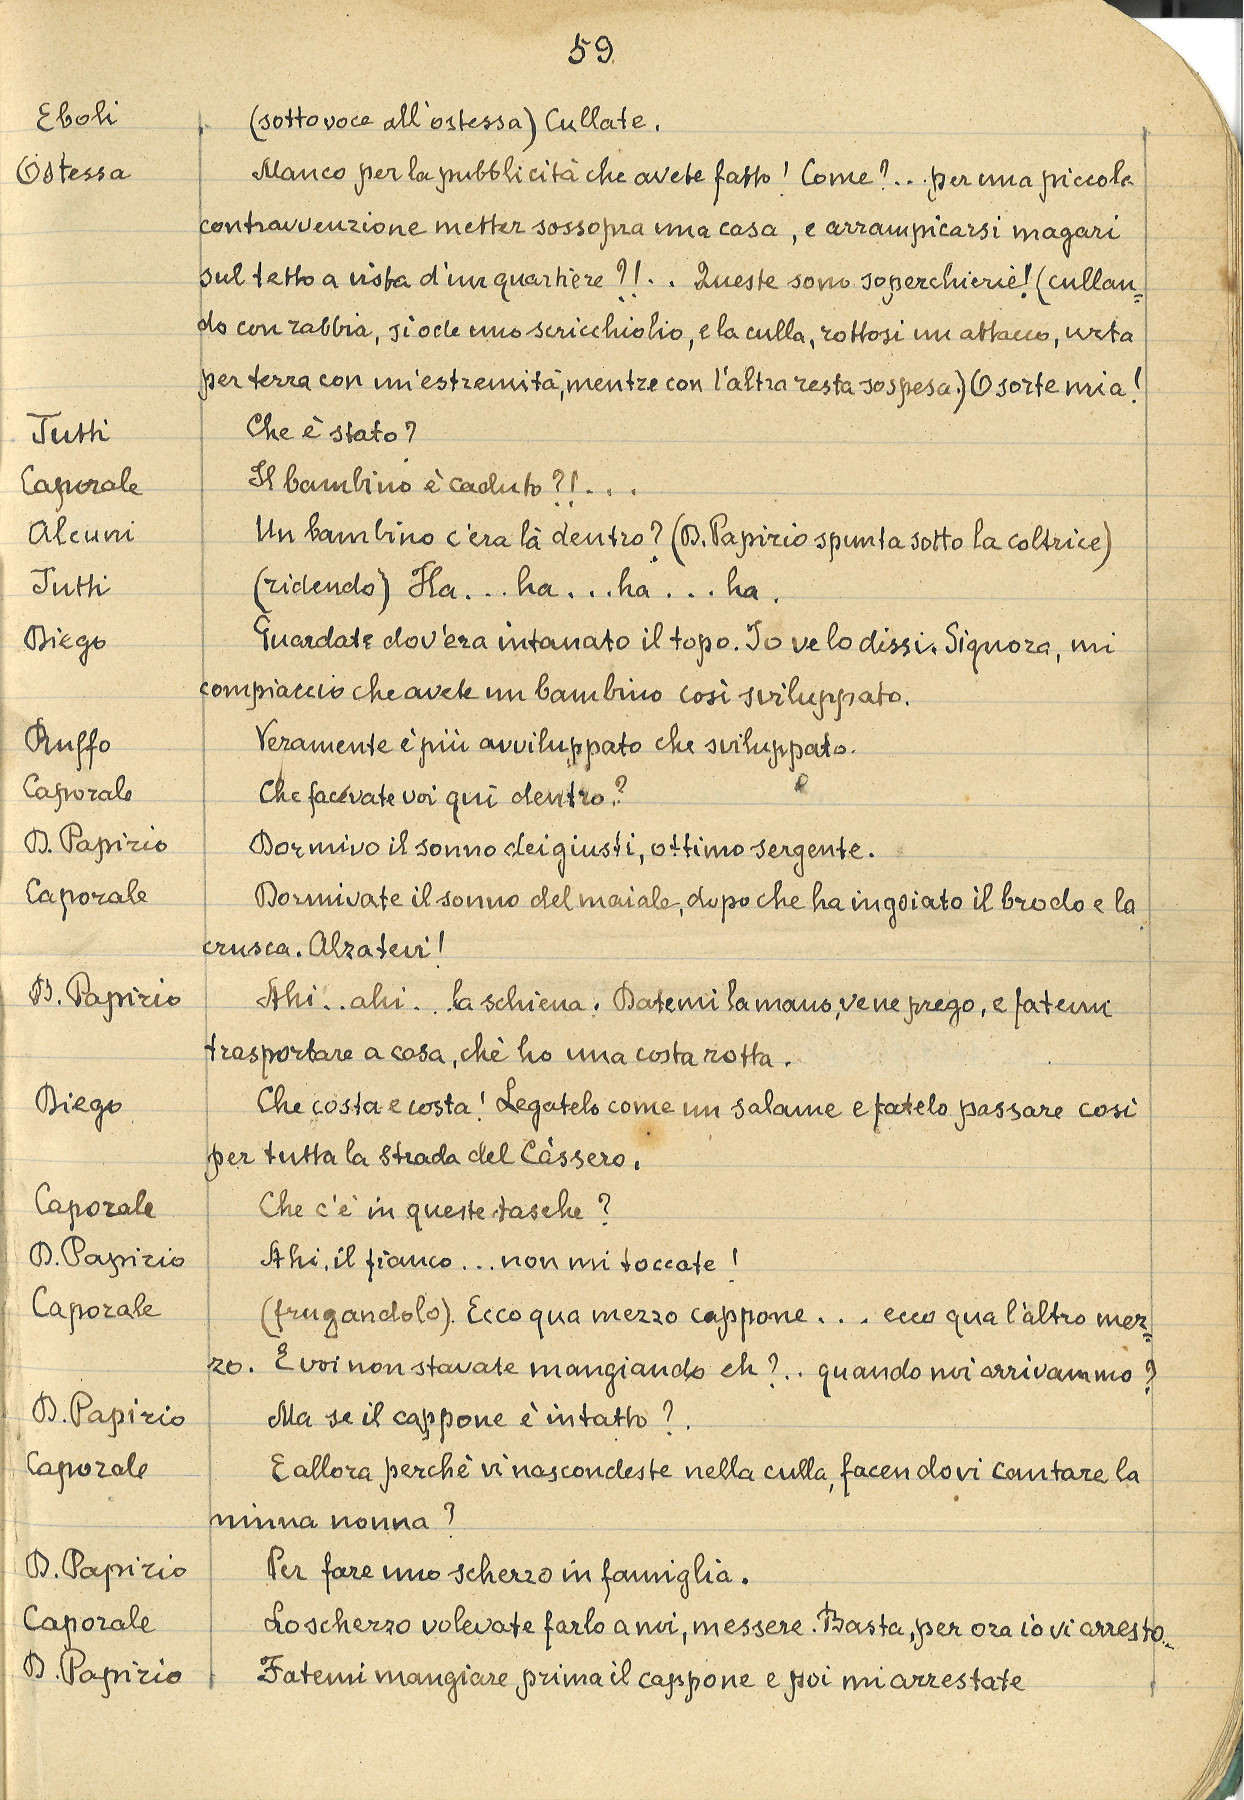 59
Eboli (sottovoce all'ostessa) Cullate.
Ostessa Manco per la pubblicità che avete fatto! Come?.. per una piccola
contravvenzione metter sossopra una casa, e arrampicarsi magari
sul tetto a vista d'un quartiere?!.. Queste sono soperchierie! (cullan=
do con rabbia, si ode uno scricchiolio, e la culla, rottosi un attacco, urta
per terra con un'estremità, mentre con l'altra resta sospesa.) O sorte mia!
Tutti Che è stato?
Caporale Il bambino è caduto?!...
Alcuni Un bambino c'era là dentro? (D. Papirio spunta sotto la coltrice)
Tutti (ridendo) Ha... ha... ha... ha.
Diego Guardate dov'era intanato il topo. Io ve lo dissi. Signora, mi
compiaccio che avete un bambino così sviluppato.
Ruffo Veramente è più avviluppato che sviluppato.
Caporale Che facevate voi qui dentro?
D. Papirio Dormivo il sonno dei giusti, ottimo sergente.
Caporale Dormivate il sonno del maiale, dopo che ha ingoiato il brodo e la
crusca. Alzatevi!
D. Papirio Ahi.. ahi... la schiena. Datemi la mano, ve ne prego, e fatemi
trasportare a casa, chè ho una costa rotta.
Diego Che costa e costa! Legatelo come un salame e fatelo passare così
per tutta la strada del Càssero.
Caporale Che c'è in queste tasche?
D. Papirio Ahi, il fianco... non mi toccate!
Caporale (frugandolo). Ecco qua mezzo cappone... ecco qua l'altro mez=
zo. E voi non stavate mangiando eh?.. quando noi arrivammo?
D. Papirio Ma se il cappone è intatto?.
Caporale E allora perchè vi nascondeste nella culla, facendovi cantare la
ninna nonna?
D. Papirio Per fare uno scherzo in famiglia.
Caporale Lo scherzo volevate farlo a noi, messere. Basta, per ora io vi arresto..
D. Papirio Fatemi mangiare prima il cappone e poi mi arrestate